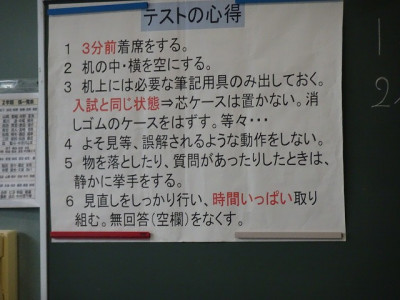 テストの心得
1 3分前着席をする。
2 机の中・横を空にする。
3 机上には必要な筆記用具のみ出しておく。
入試と同じ状態⇒芯ケースは置かない。消
しゴムのケースをはずす。等々・・・
4 よそ見等、誤解されるような動作をしない。
5 物を落としたり、質問があったりしたときは、
静かに挙手をする。
6 見直しをしっかり行い、時間いっぱい取り
組む。無回答(空欄)をなくす。
1
2